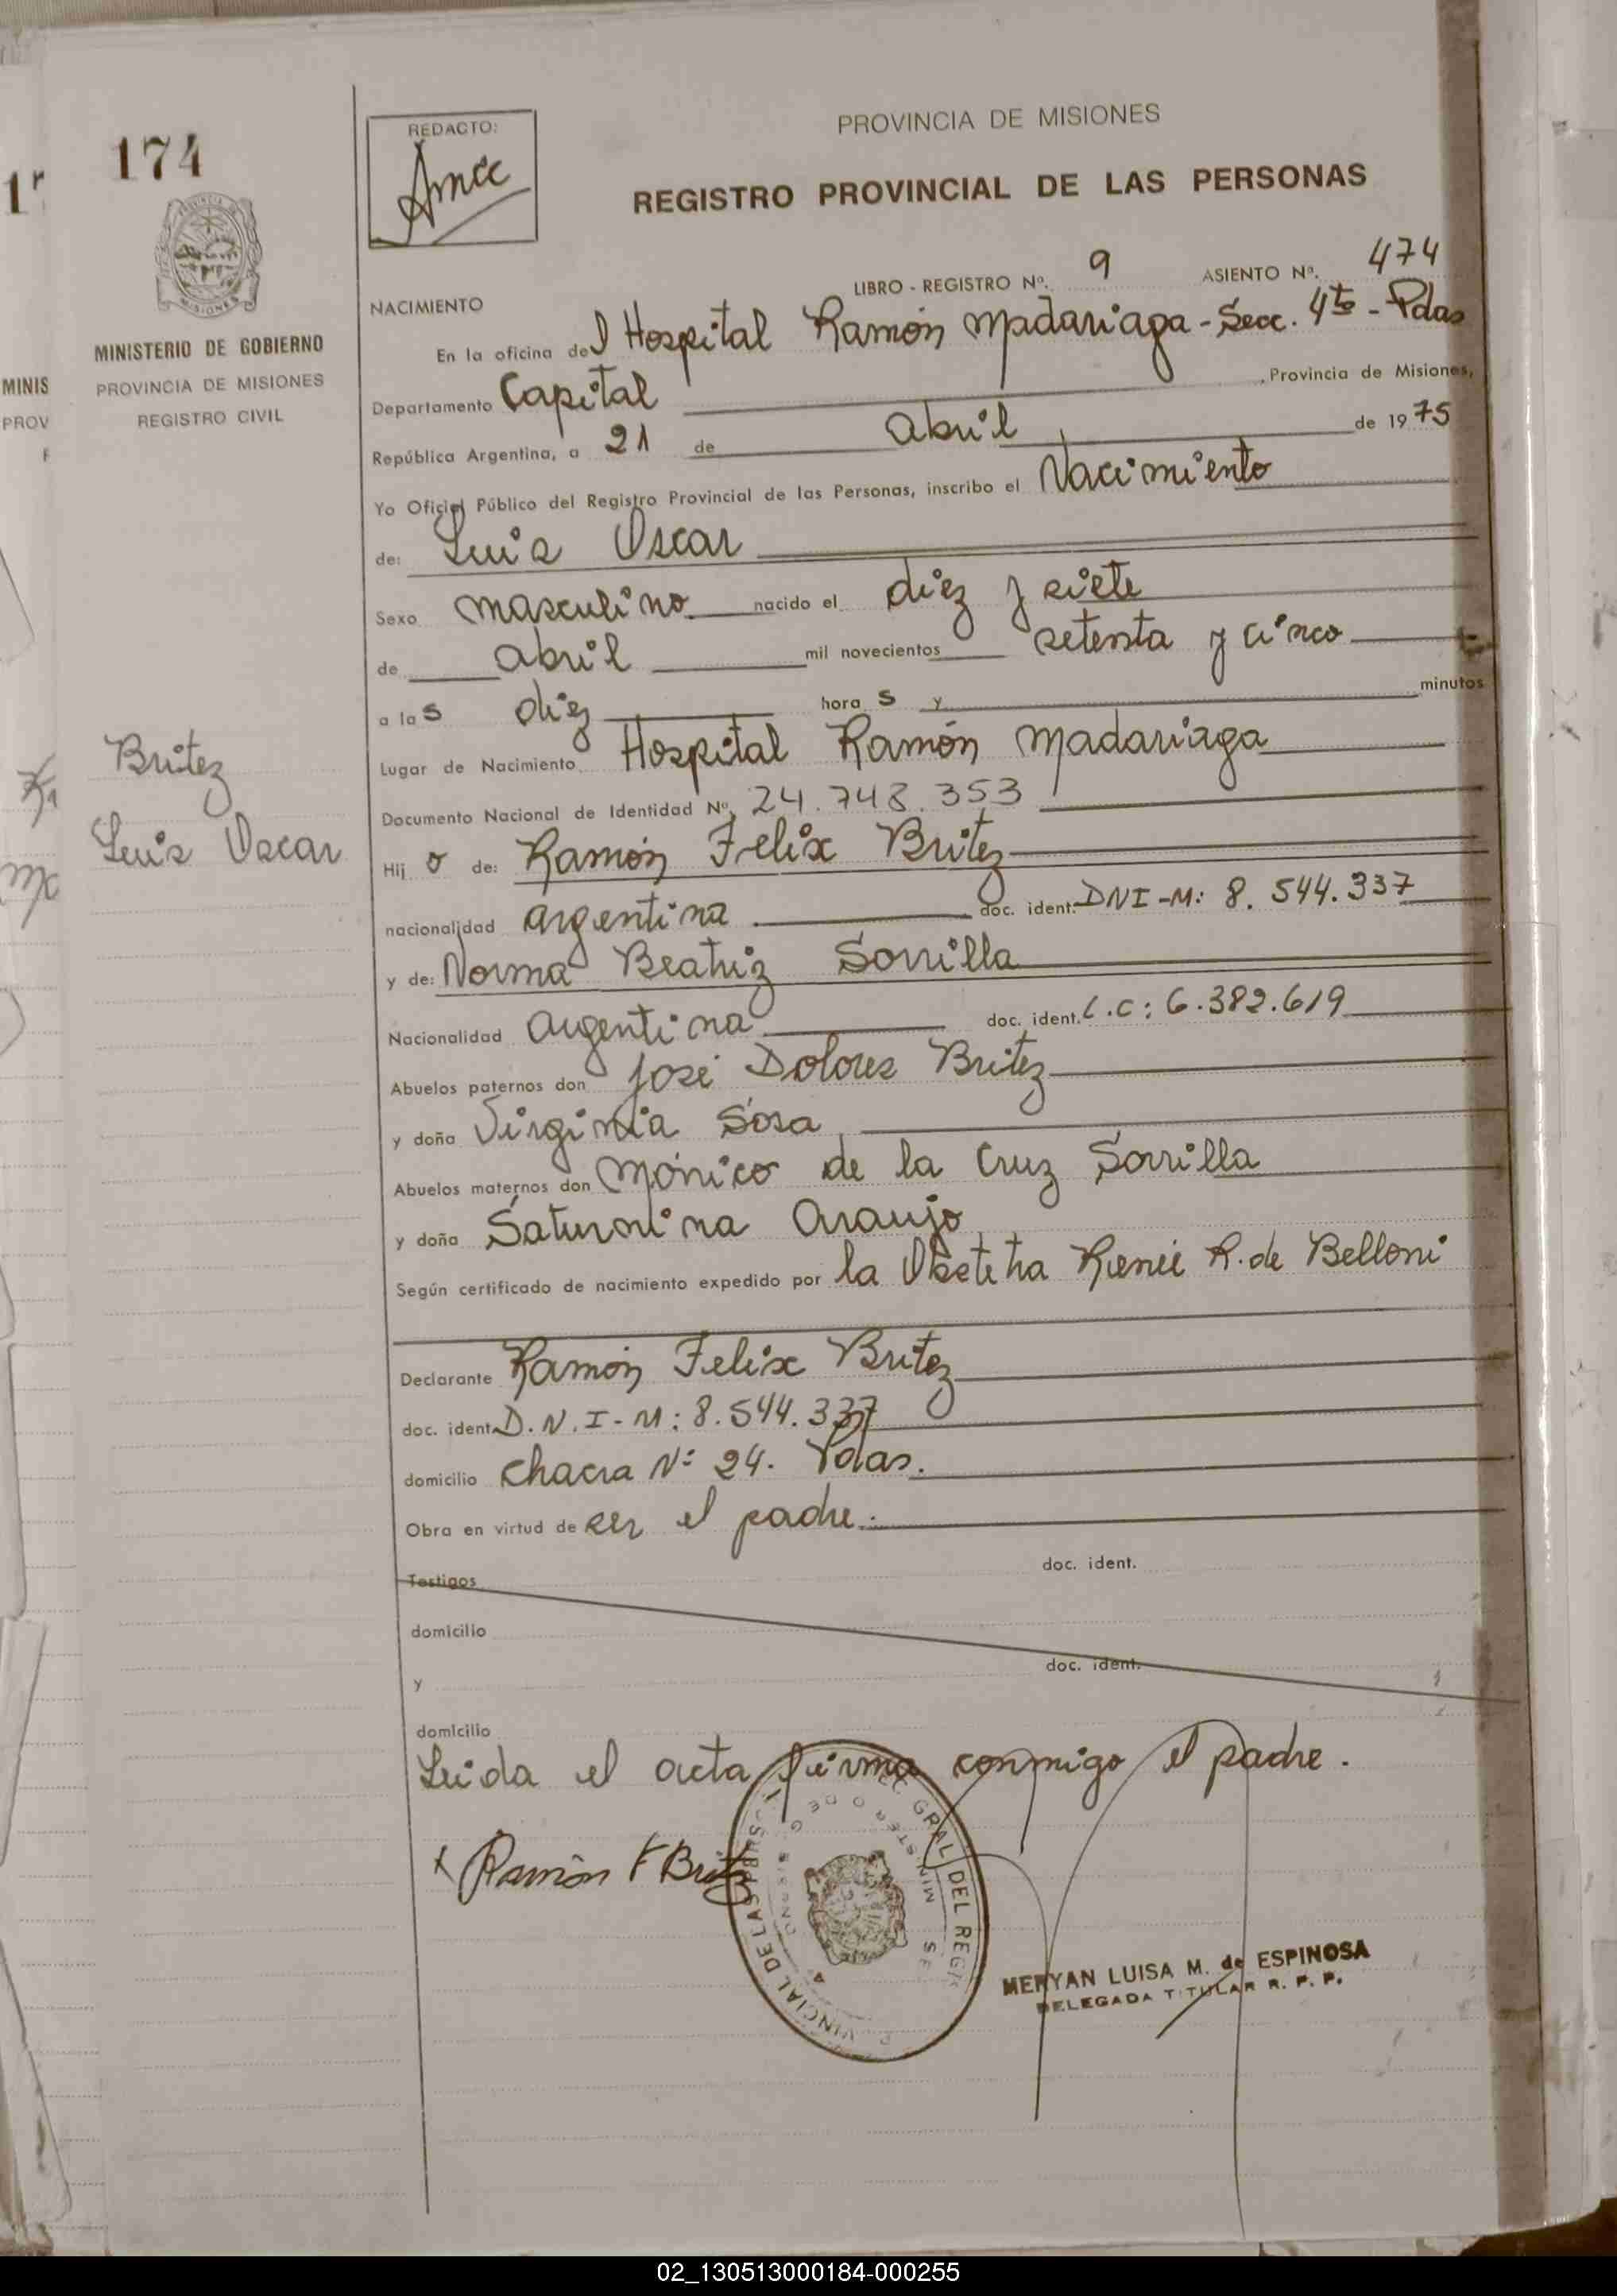 174
MINISTERIO DE GOBIERNO
PROVINCIA DE MISIONES
REGISTRO CIVIL
Britez
Luis Oscar
MINIS
PROV
REDACTO:
PROVINCIA DE MISIONES
REGISTRO PROVINCIAL DE LAS PERSONAS
LIBRO - REGISTRO Nº. 9 ASIENTO Nº. 474
NACIMIENTO
En la oficina del Hospital Ramón Madariaga - Secc. 4ta - Pdas
Departamento Capital , Provincia de Misiones,
República Argentina, a 21 de abril de 1975
Yo Oficial Público del Registro Provincial de las Personas, inscribo el Nacimiento
de: Luis Oscar
Sexo masculino nacido el diez y siete
de abril mil novecientos setenta y cinco
a las diez horas y minutos
Lugar de Nacimiento Hospital Ramón Madariaga
Documento Nacional de Identidad Nº. 24.748.353
Hijo de: Ramón Felix Britez
nacionalidad argentina doc. ident. DNI-M: 8.544.337
y de: Norma Beatriz Sorrilla
Nacionalidad argentina doc. ident. L.C: 6.382.619
Abuelos paternos don José Dolores Britez
y doña Virginia Sosa
Abuelos maternos don Mónico de la Cruz Sorrilla
y doña Saturnina Araujo
Según certificado de nacimiento expedido por la Obstetra Reneé R. de Belloni
Declarante Ramón Felix Britez
doc. ident. D.N.I-M: 8.544.337
domicilio Chacra Nº 24. Pdas.
Obra en virtud de ser el padre.
doc. ident.
Testigos
domicilio
doc. ident.
y
domicilio
Leida el acta firma conmigo el padre.
x Ramón F Britez
GRAL DEL REG
VINCIAL DE LAS
MERYAN LUISA M. de ESPINOSA
DELEGADA TITULAR R. P. P.
02_130513000184-000255